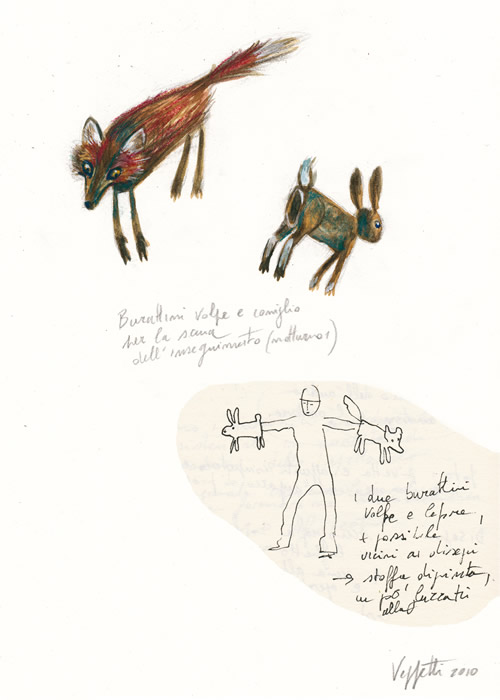 Burattini volpe e coniglio
per la scena
dell'inseguimento (notturno)
i due burattini
volpe e lepre,
+ possibile
vicini ai disegni
→ stoffa dipinta,
un po' alla Luzzati
2010